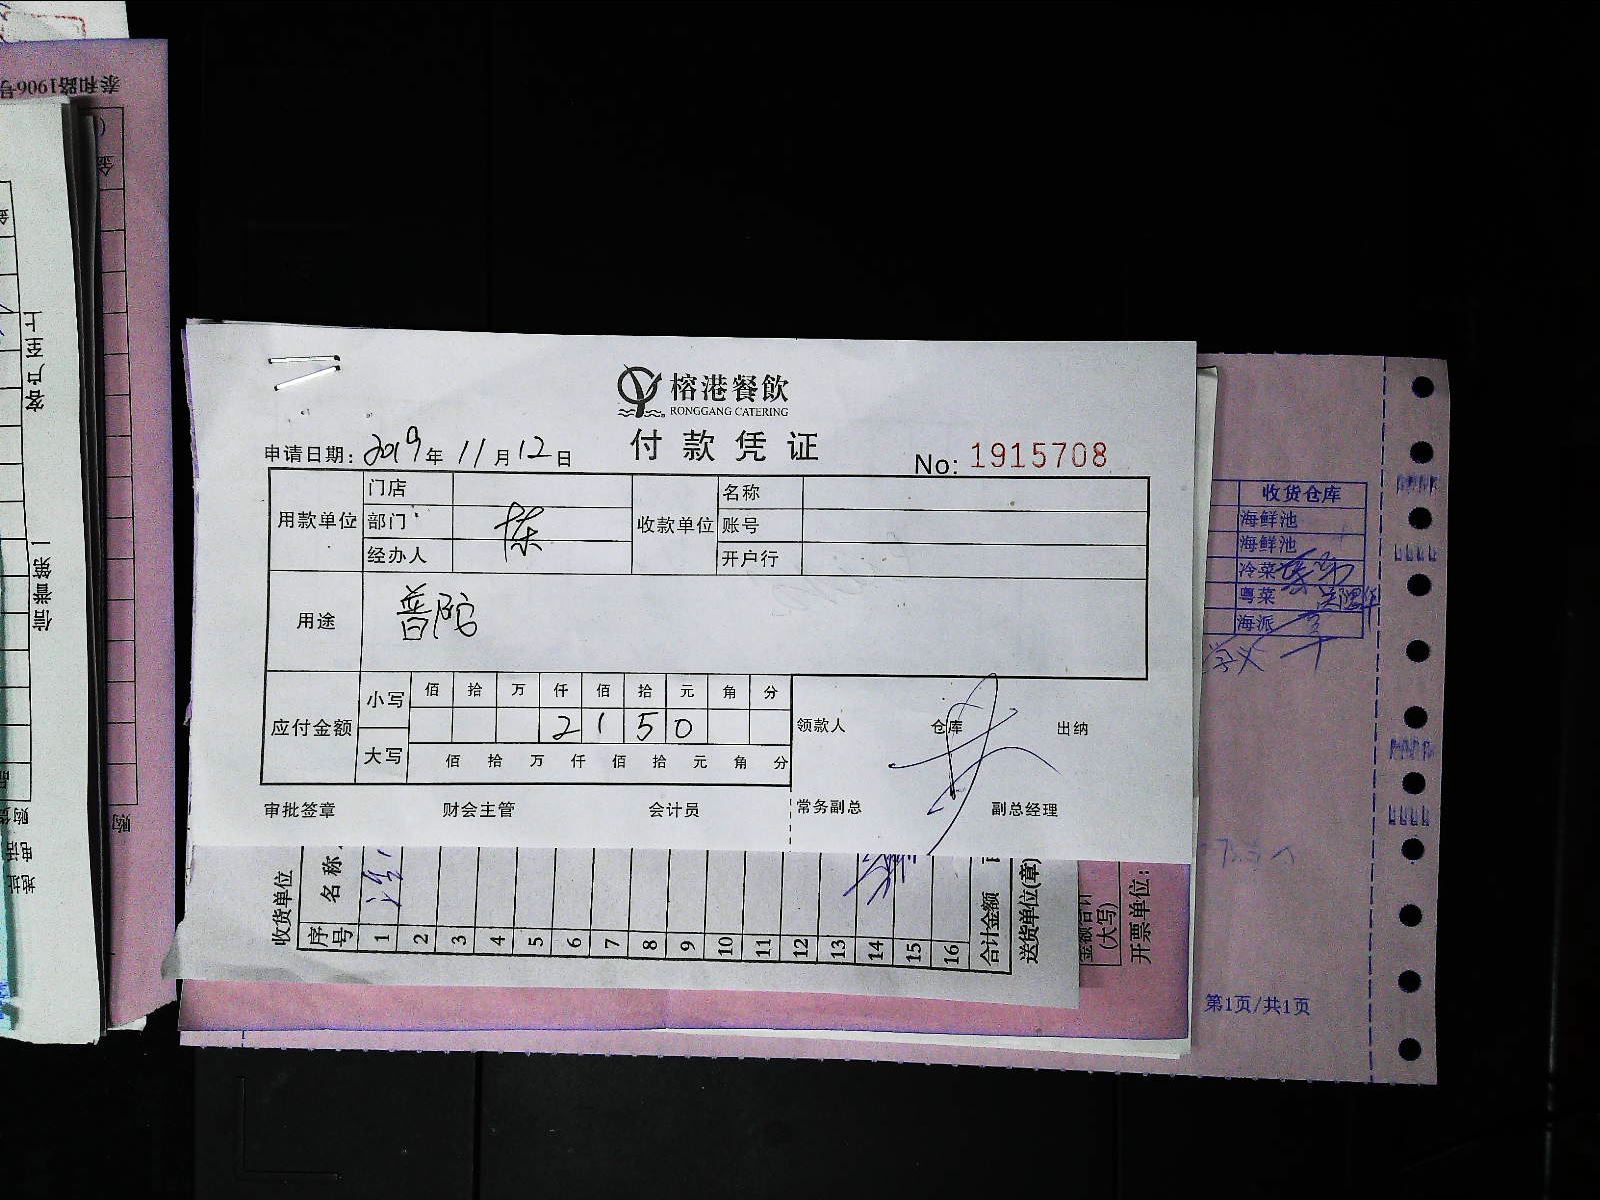 榕港餐飲
RONGGANG CATERING
付款凭证
申请日期: 2019年11月12日
No: 1915708
用款单位 门店 收款单位 名称
部门 账号
经办人 开户行
陈
用途 普陀
应付金额 小写 佰 拾 万 仟 佰 拾 元 角 分
2 1 5 0
大写 佰 拾 万 仟 佰 拾 元 角 分
领款人 仓库 出纳
审批签章 财会主管 会计员 常务副总 副总经理
收货单位
序号 名称
1 2 3 4 5 6 7 8 9 10 11 12 13 14 15 16
合计金额
送货单位(章)
金额合计
(大写)
开票单位:
收货仓库
海鲜池
海鲜池
冷菜
粤菜
海派
第1页/共1页
泰和路1906号
客户至上
信誉第一
购货
电话
地址
购